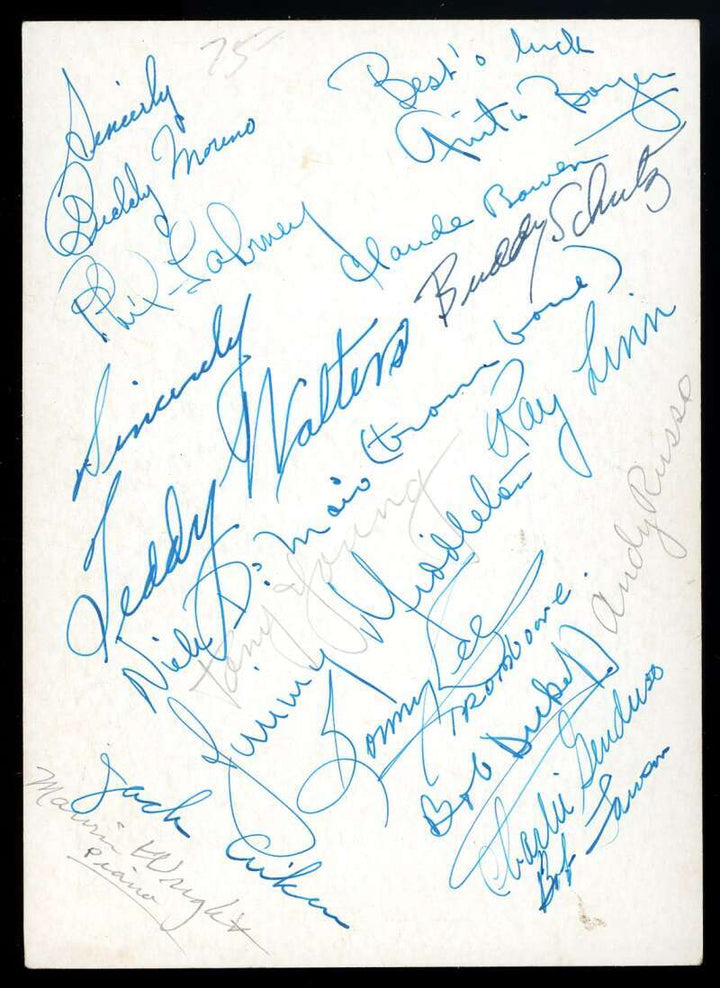 75-
Sincerly
Buddy Moreno
Best's luck
Anita Boyer
Claude Bowen
Buddy Schutz
Phil
Sincerely
Teddy Walters
Nick Di Maio (trombone)
Ray Linn
Tony Young
Jimmy Middleton
Andy Russo
Sonny Lee
TROMBONE.
Bob
Charlie Genduso
Bob Lawson
Jack Aiken
Marvin Wright
Piano